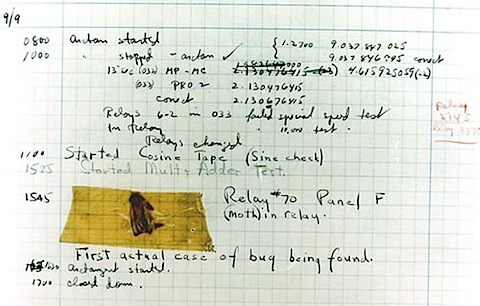 9/9
0800 antan started
1000 " stopped - antan ✓ { 1.2700 9.037 847 025
9.037 846 995 correct
13"uc (032) MP - MC 2.130476415 (-3) 4.615925059(-2)
(033) PRO 2 2.130476415
correct 2.130676415
Relays 6-2 in 033 failed special speed test
In Relay " 10.000 test.
Relays changed
Relay
2145
Relay 3370
1100 Started Cosine Tape (Sine check)
1525 Started Mult+ Adder Test.
1545 Relay #70 Panel F
(moth) in relay.
First actual case of bug being found.
1630 antangent started.
1700 closed down.